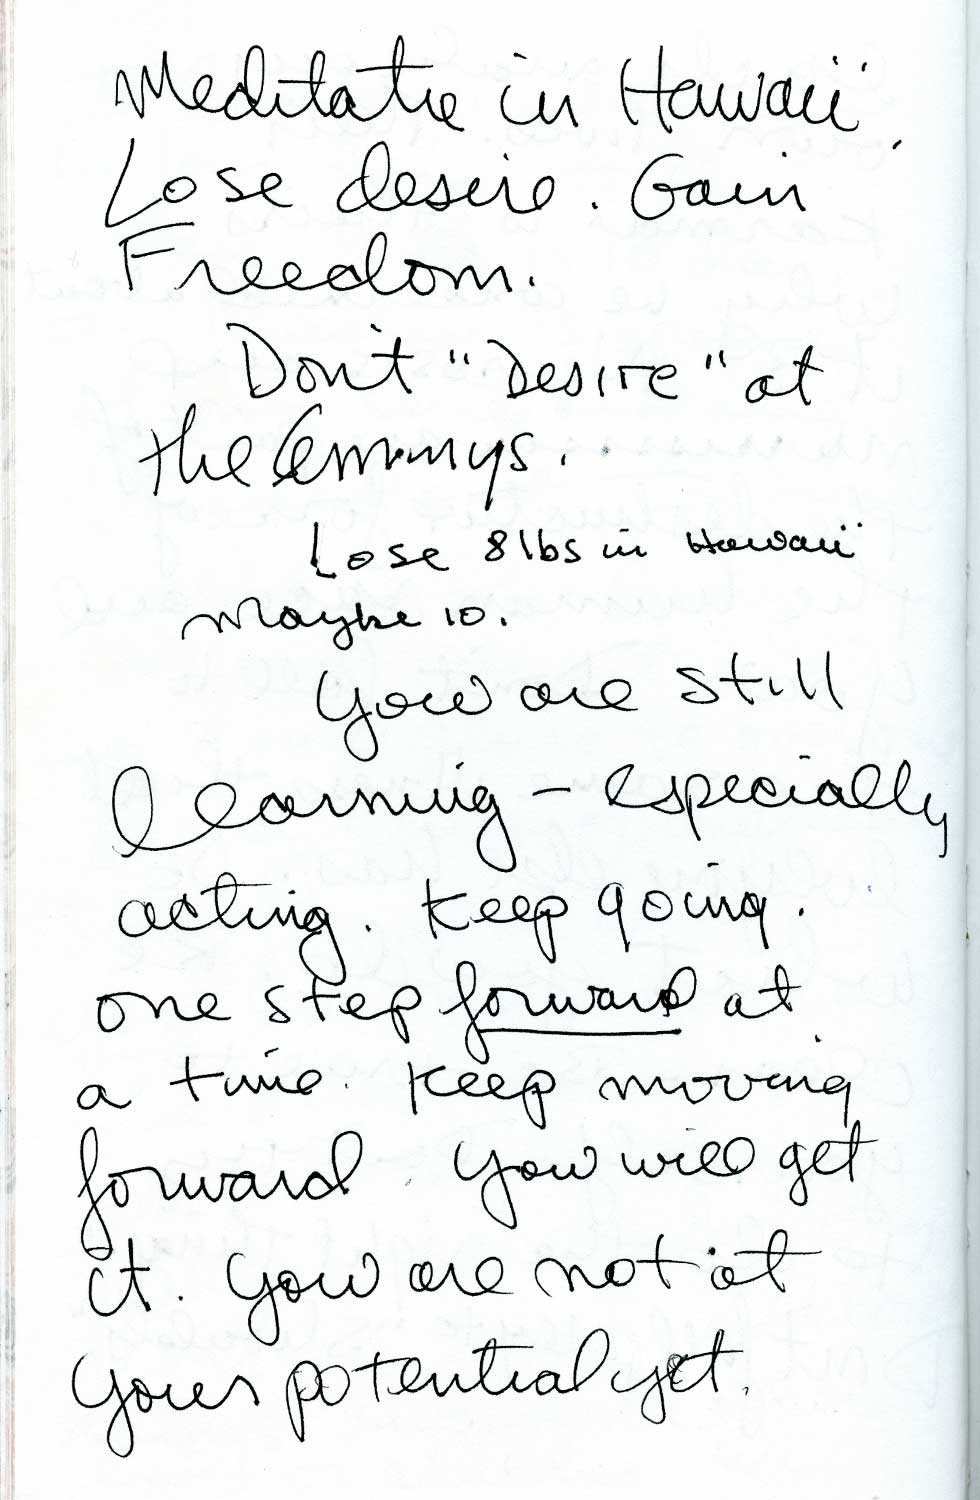 Meditate in Hawaii.
Lose desire. Gain
Freedom.
Don't "Desire" at
the Emmys.
Lose 8 lbs in Hawaii
Maybe 10.
You are still
learning - especially
acting. Keep going.
one step forward at
a time. Keep moving
forward. You will get
it. You are not at
your potential yet.